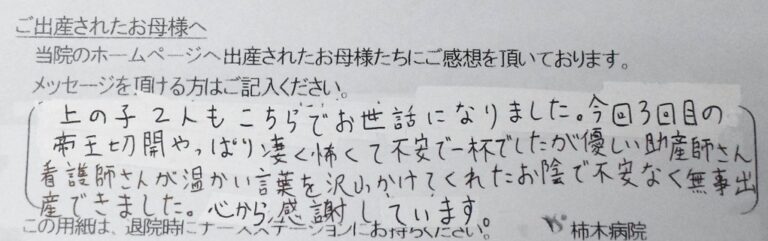 ご出産されたお母様へ
当院のホームページへ出産されたお母様たちにご感想を頂いております。
メッセージを頂ける方はご記入ください。
上の子2人もこちらでお世話になりました。今回3回目の
帝王切開やっぱり凄く怖くて不安で一杯でしたが優しい助産師さん
看護師さんが温かい言葉を沢山かけてくれたお陰で不安なく無事出
産できました。心から感謝しています。
この用紙は、退院時にナースステーションにお持ちください。 柿木病院